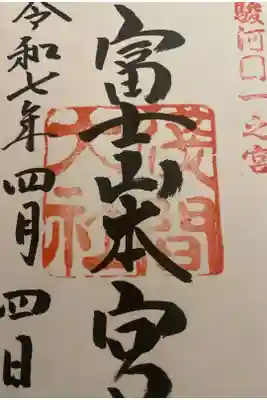 駿河囗一之宮
富士山本宮
浅間大社
令和七年四月四日